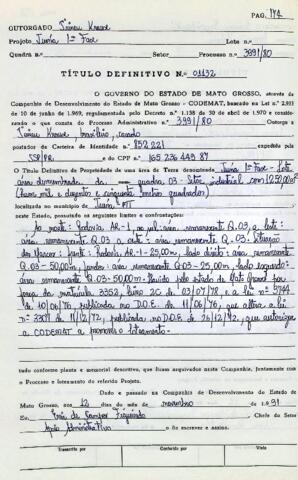 PAG. 174
OUTORGADO Irineu Krause
Projeto Juína 1ª Fase Lote n.
Quadra n.º Setor Processo n.º 3991/80
TÍTULO DEFINITIVO N.º 01132
O GOVERNO DO ESTADO DE MATO GROSSO, através da
Companhia de Desenvolvimento do Estado de Mato Grosso - CODEMAT, baseado na Lei n.º 2.903
de 10 de junho de 1969, regulamentada pelo Decreto n.º 1.138 de 30 de abril de 1970 e considerando
o que consta do Processo Administrativo n.º 3991/80
Irineu Krause, brasileiro, casado
portador da Carteira de Identidade n.º 852 221 expedida
SSP/PR e do CPF n.º 165 236 449 87
O Título Definitivo de Propriedade de uma área de Terra denominada Juína 1ª Fase - Lote
área desmembrada da quadra 03 - Setor industrial com 1.250,00 m²
(hum mil e duzentos e cinquenta metros quadrados)
localizada no município de Juína MT
neste Estado, possuindo os seguintes limites e confrontações:
Ao norte: Rodovia AR-1; ao sul: área remanescente Q.03 a leste:
área remanescente Q.03 a oeste: área remanescente Q.03. Situação
dos Marcos: frente: Rodovia AR-1 - 25,00m, lado direito: área remanescente
Q.03 - 50,00m, fundos: área remanescente Q.03 - 25,00m, lado esquerdo:
área remanescente Q.03 - 50,00m. Havido pelo estado de Mato Grosso por
força da matrícula 3352, livro 2C de 03/07/78, e a lei n.º 3744
de 10/06/76, publicada no D.O.E. de 11/06/76, que altera a lei
n.º 3307 de 18/12/72, publicada no D.O.E. de 26/12/72, que autoriza
a CODEMAT a promover o loteamento.
tudo conforme planta e memorial descritivo, que ficam arquivados nesta Companhia, juntamente com
o Processo e loteamento do referido Projeto.
Dado e passado na Companhia de Desenvolvimento do Estado de
Mato Grosso, aos 12 dias do mês de novembro de 1.991
Eu, de Campos Figueiredo Chefe do Setor
Apoio Administrativo o fiz escrever e assino.
Transcrito por Conferido por Visto